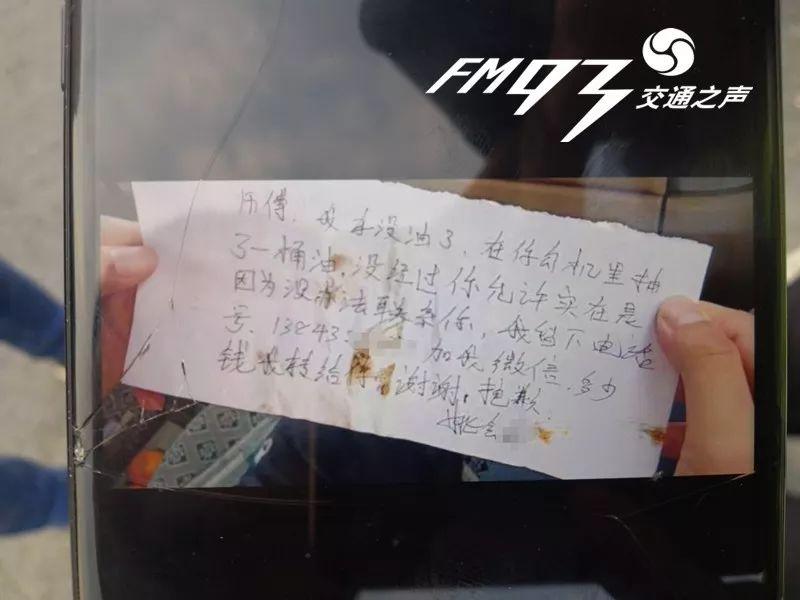 FM93交通之声
师傅,我车没油了,在你勾机里抽
了一桶油,没经过你允许实在是
因为没办法联系你,我留下电话
号、13843 加我微信,多少
钱我转给你,谢谢,抱歉
姚会